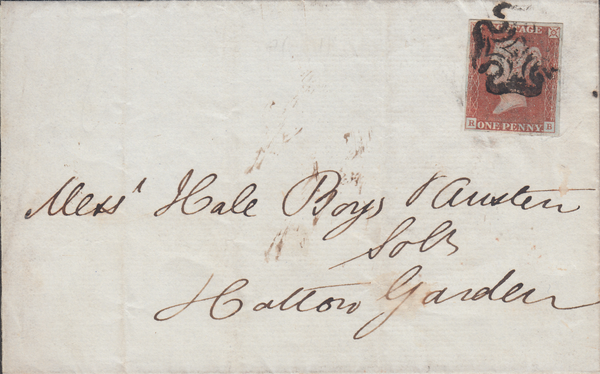 POSTAGE
R ONE PENNY B
Mess^rs Hale Boys & Austen
Sol^rs
Hatton Garden